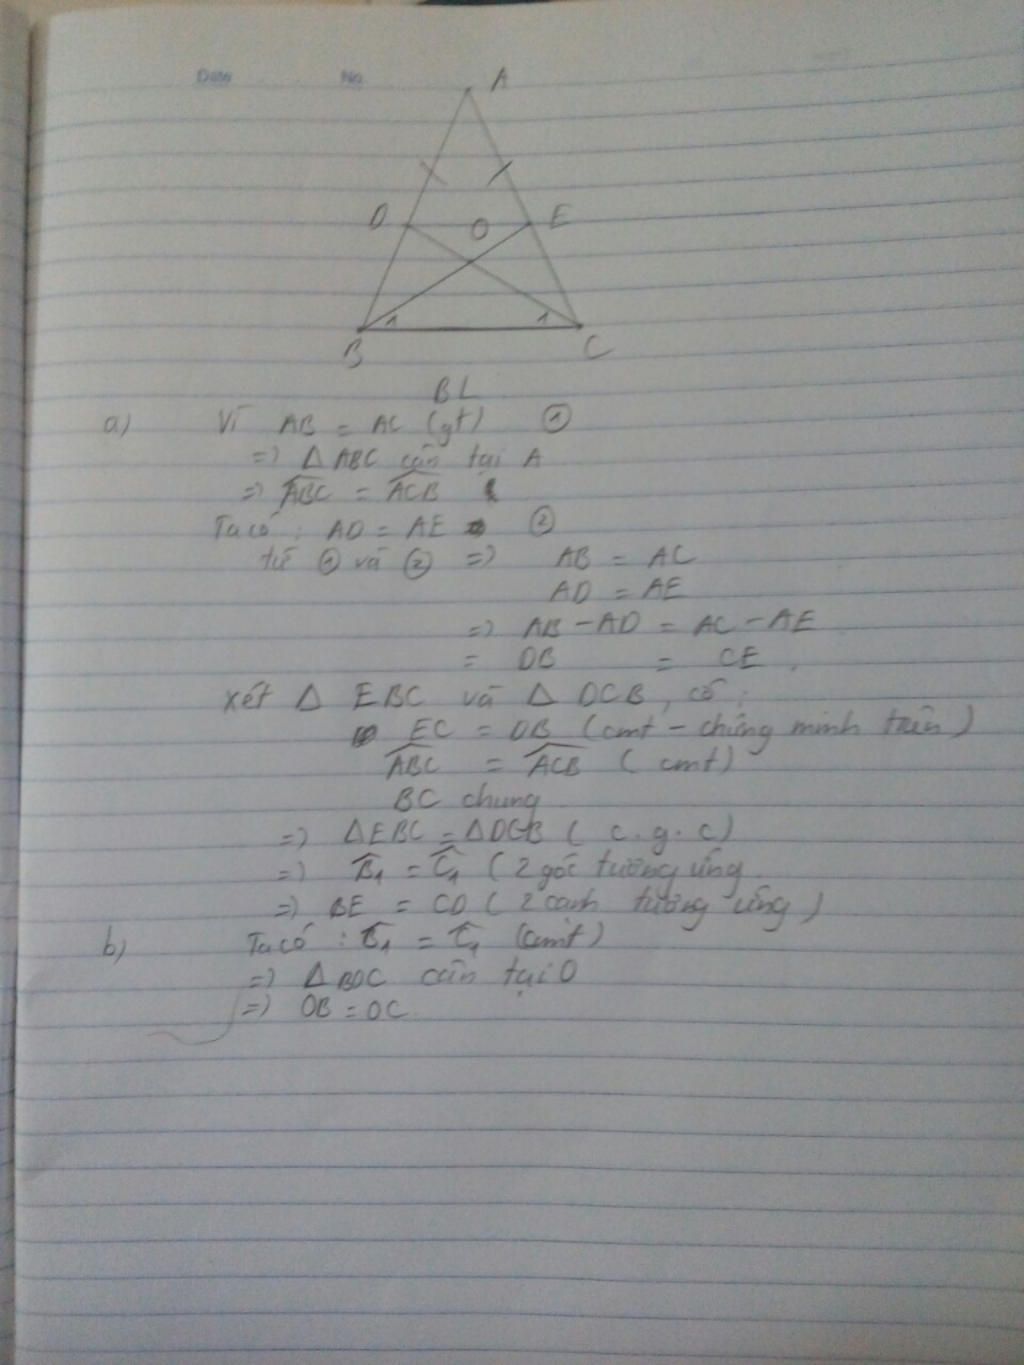 Date No
A
D O E
1 1
B C
BL
a) Vì AB = AC (gt) ①
=> Δ ABC cân tại A
=> ABC = ACB
Ta có : AD = AE ②
từ ① và ② => AB = AC
AD = AE
=> AB - AD = AC - AE
= DB = CE .
xét Δ EBC và Δ DCB, có :
EC = DB (cmt - chứng minh trên)
ABC = ACB ( cmt)
BC chung
=> ΔEBC = ΔDCB ( c.g.c)
=> B1 = C1 (2 góc tương ứng
=> BE = CD ( 2 cạnh tương ứng )
b) Ta có : B1 = C1 (cmt)
=> Δ BOC cân tại O
=> OB = OC